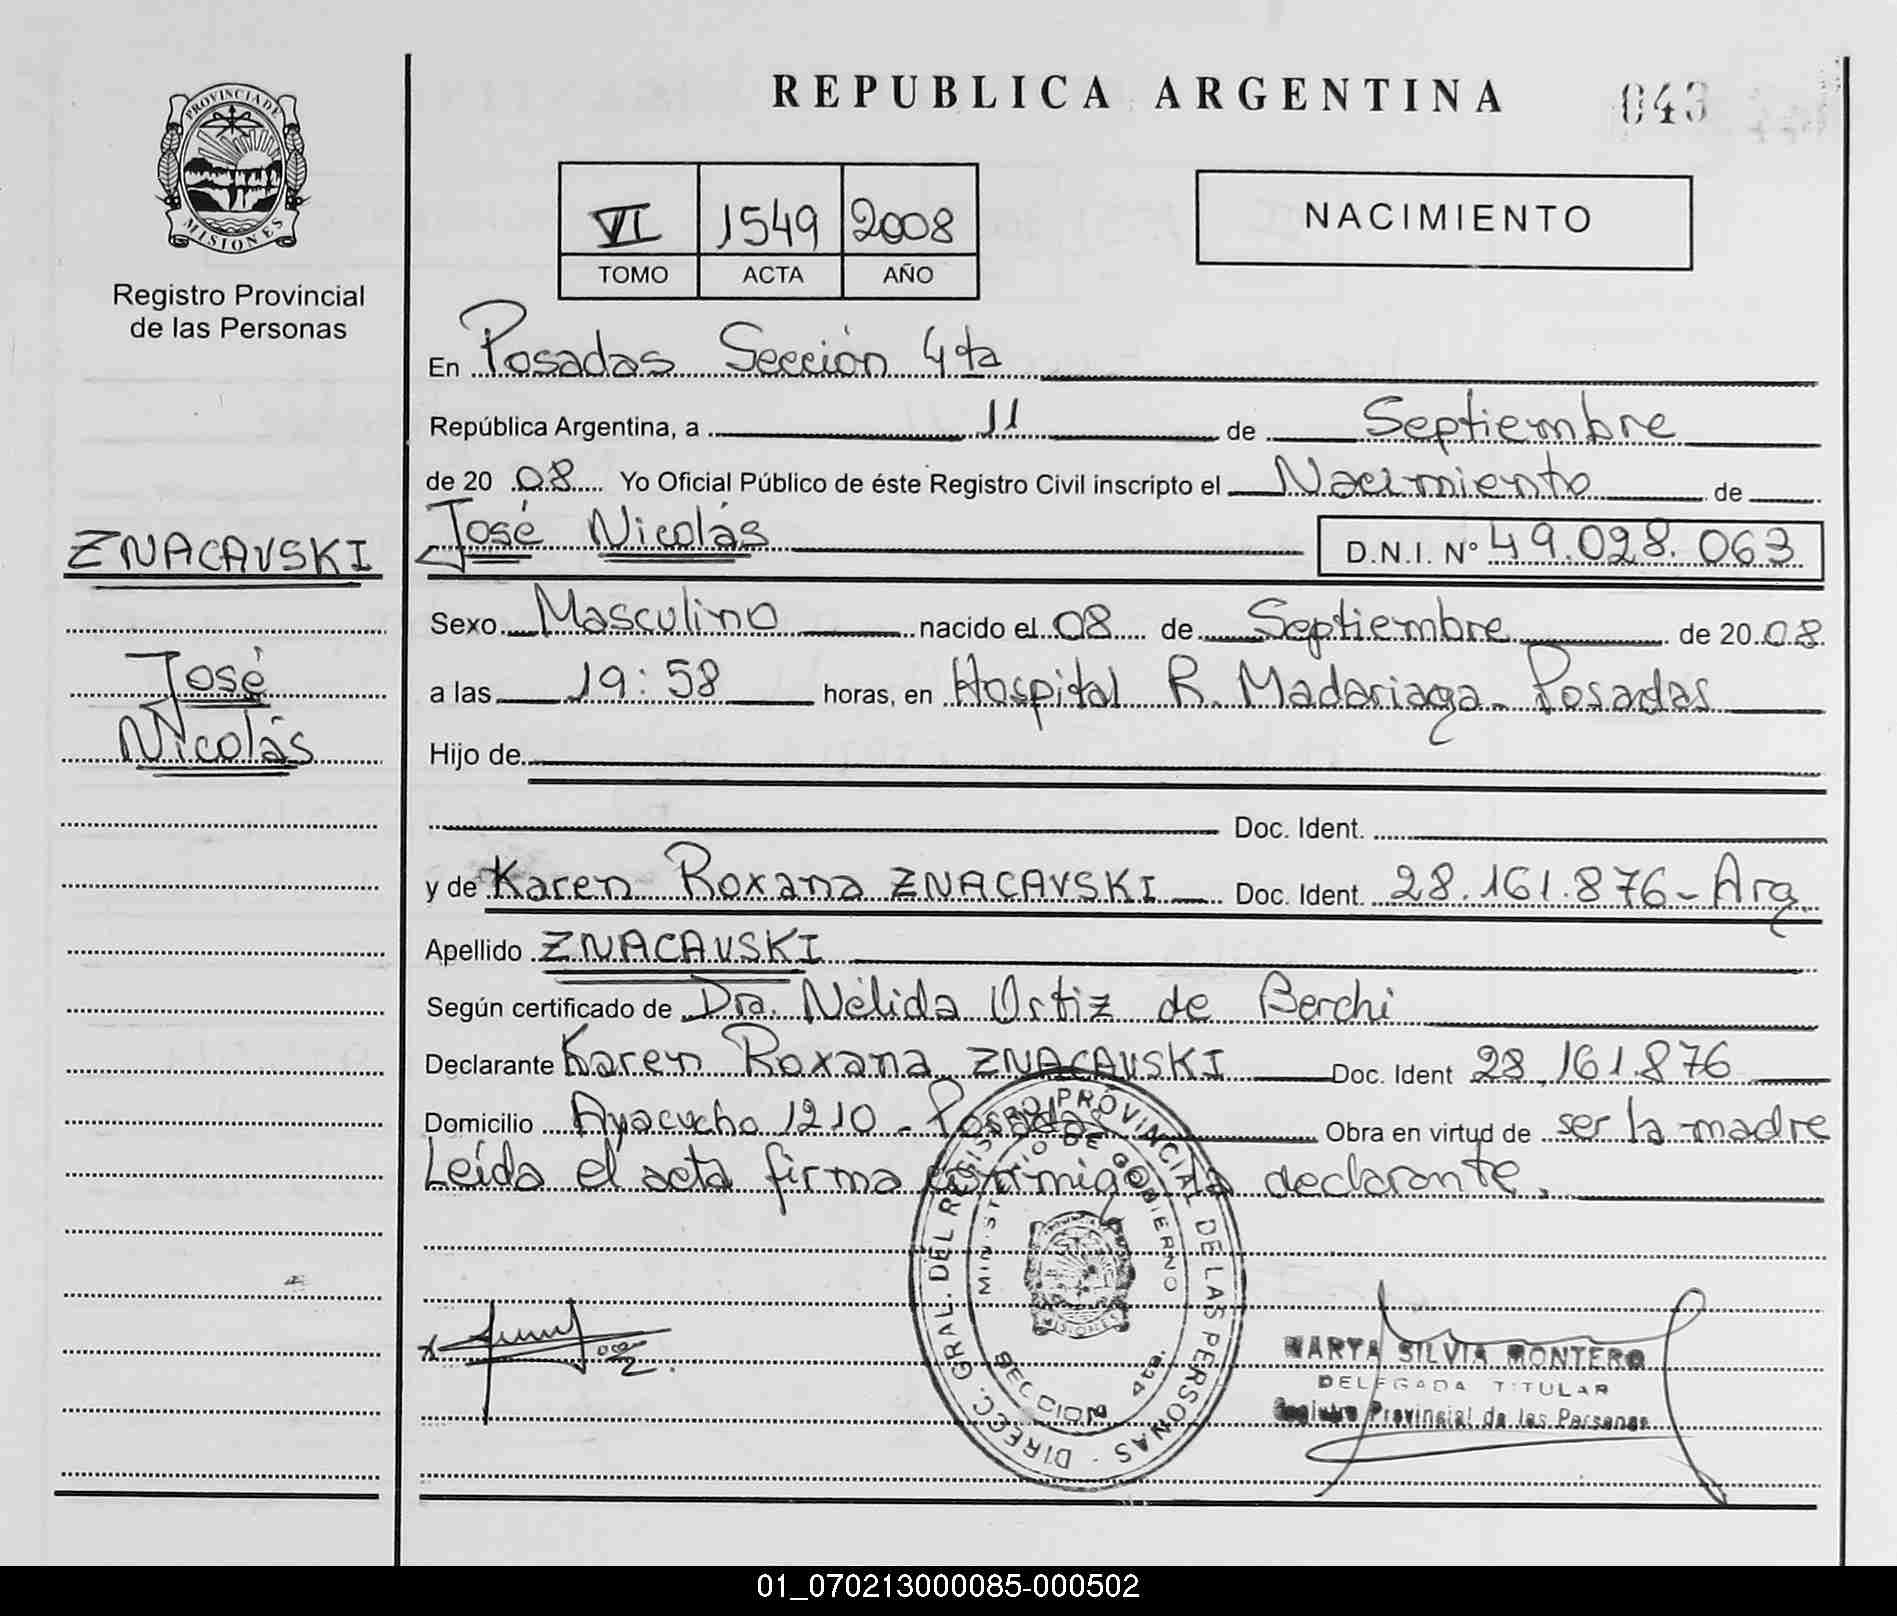 REPUBLICA ARGENTINA 043
PROVINCIA DE
MISIONES
Registro Provincial
de las Personas
VI 1549 2008
TOMO ACTA AÑO
NACIMIENTO
En Posadas Sección 4ta
República Argentina, a 11 de Septiembre
de 20 08 Yo Oficial Público de éste Registro Civil inscripto el Nacimiento de
ZNACAVSKI
José Nicolás D.N.I. Nº 49.028.063
Sexo Masculino nacido el 08 de Septiembre de 20 08
José
Nicolás
a las 19:58 horas, en Hospital R. Madariaga - Posadas
Hijo de
Doc. Ident.
y de Karen Roxana ZNACAVSKI Doc. Ident. 28.161.876 - Arg.
Apellido ZNACAVSKI
Según certificado de Dra. Nélida Ortiz de Berchi
Declarante Karen Roxana ZNACAVSKI Doc. Ident 28.161.876
Domicilio Ayacucho 1210 - Posadas Obra en virtud de ser la madre
Leída el acta firma conmigo la declarante.
DIRECC. GRAL. DEL REGISTRO PROVINCIAL DE LAS PERSONAS
MINISTERIO DE GOBIERNO
MISIONES
SECCION 4ta.
MARTA SILVIA MONTERO
DELEGADA TITULAR
Registro Provincial de las Personas
01_070213000085-000502